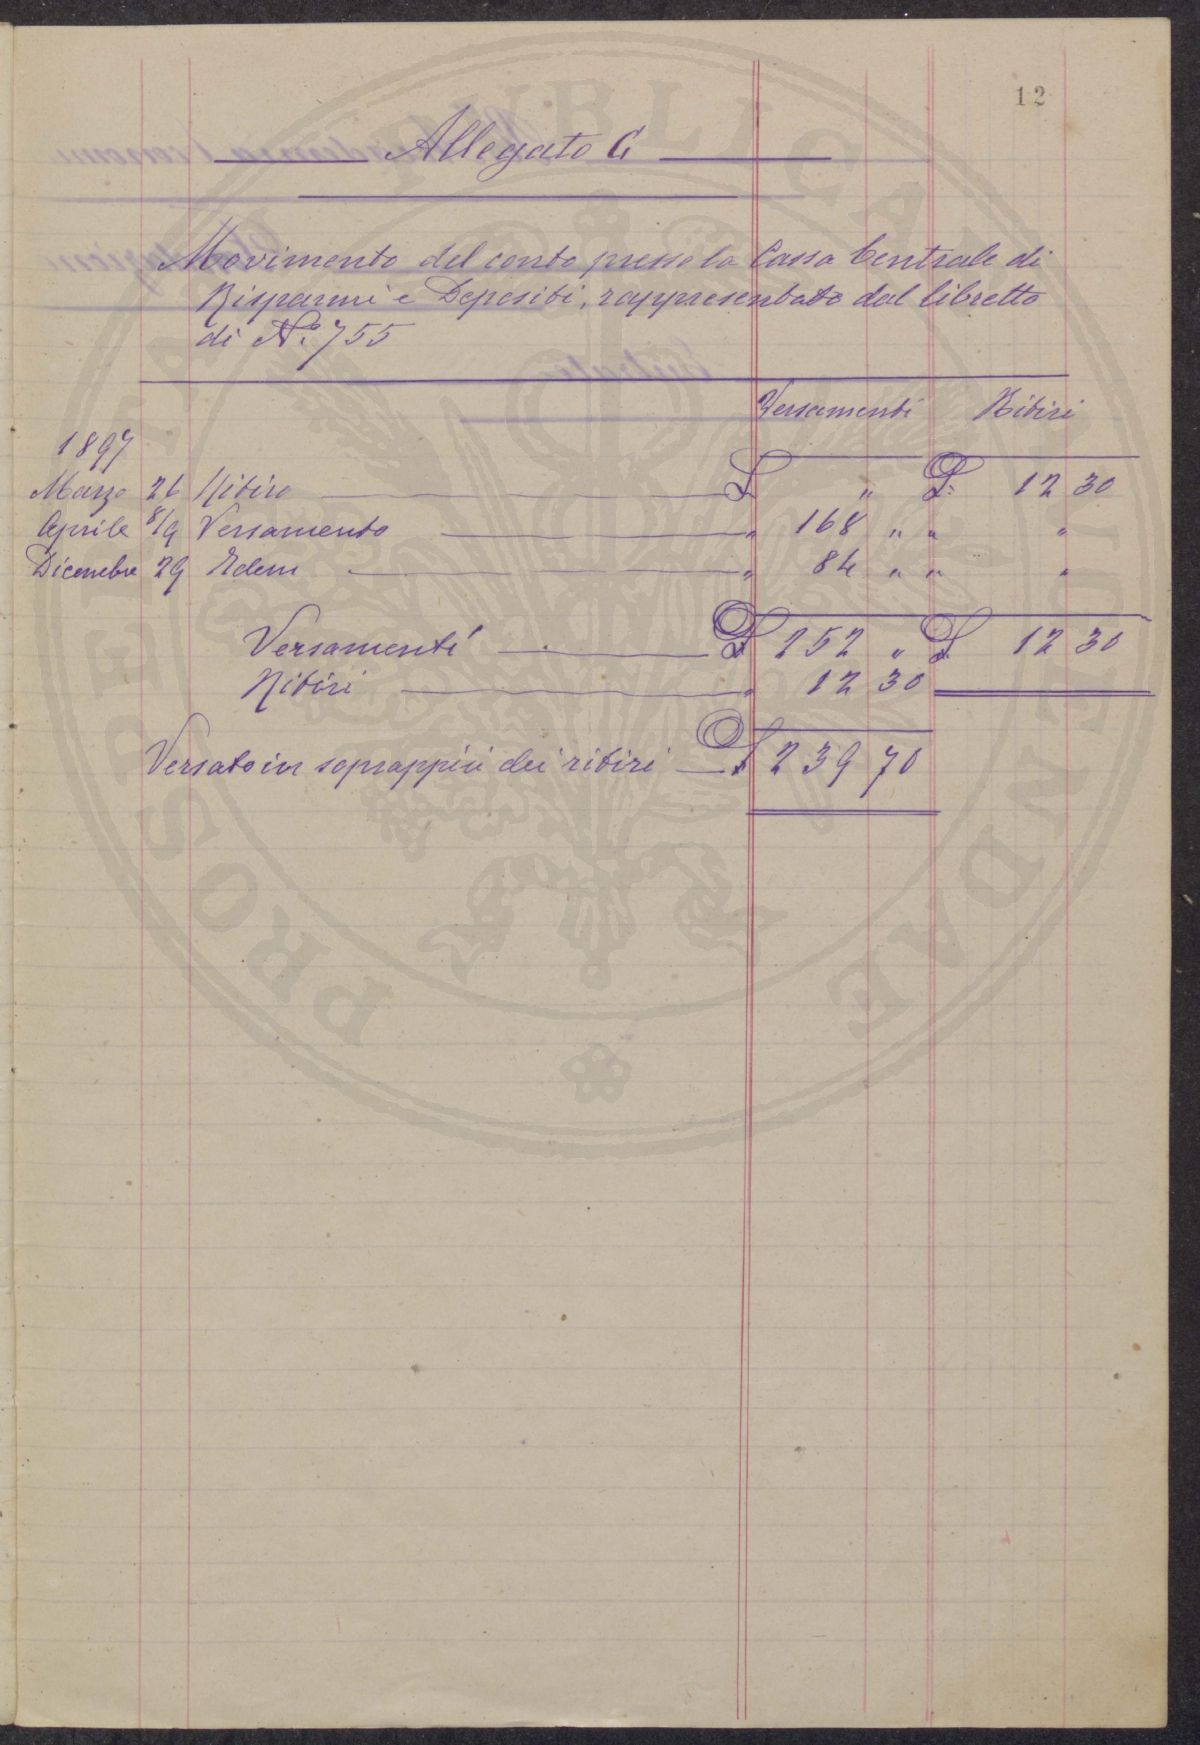 12
Allegato G
Movimento del conto presso la Cassa Centrale di
Risparmi e Depositi, rappresentato dal libretto
di No. 755
Versamenti Ritiri
1897
Marzo 26 Ritiro L „ L. 12 30
Aprile 8/9 Versamento „ 168 „ „ „
Dicembre 29 Idem „ 84 „ „ „
Versamenti L 252 „ L 12 30
Ritiri „ 12 30
Versato in soprappiù dei ritiri L 239 70